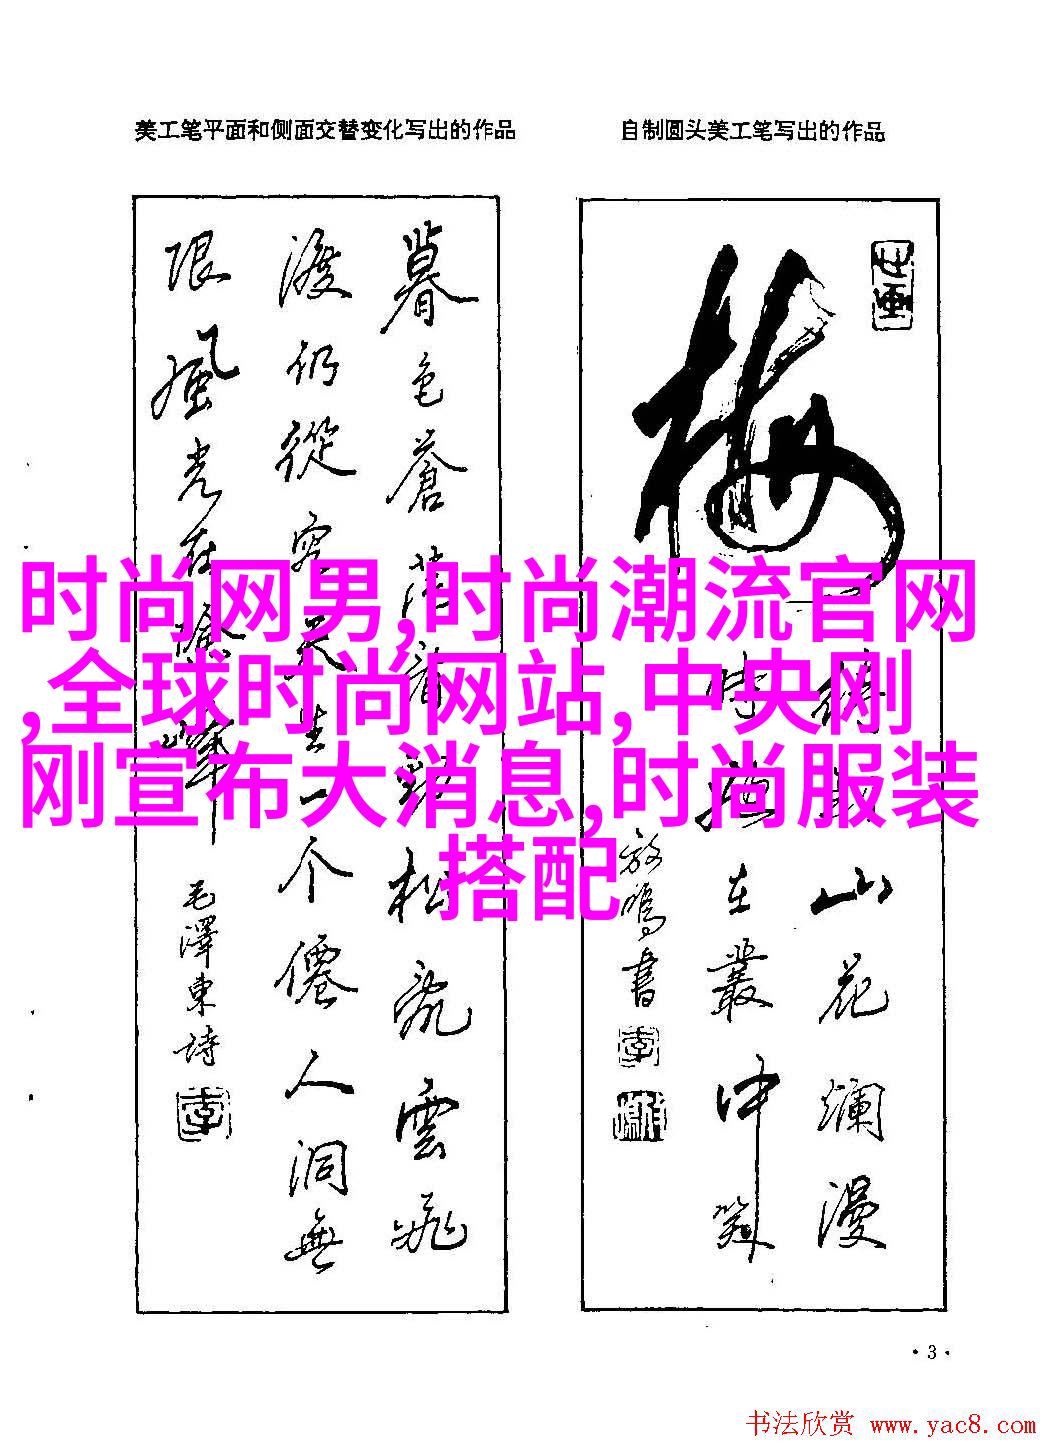 美工笔平面和侧面交替变化写出的作品
自制圆头美工笔写出的作品
暮色蒼茫看劲松亂雲飛
渡仍從容天生一个僊人洞無
限風光在險峰
毛澤東詩
梅
待到山花爛漫
時她在叢中笑
时尚网男,时尚潮流官网
,全球时尚网站,中央刚
刚宣布大消息,时尚服装
搭配
·3·
书法欣赏 www.yac8.com